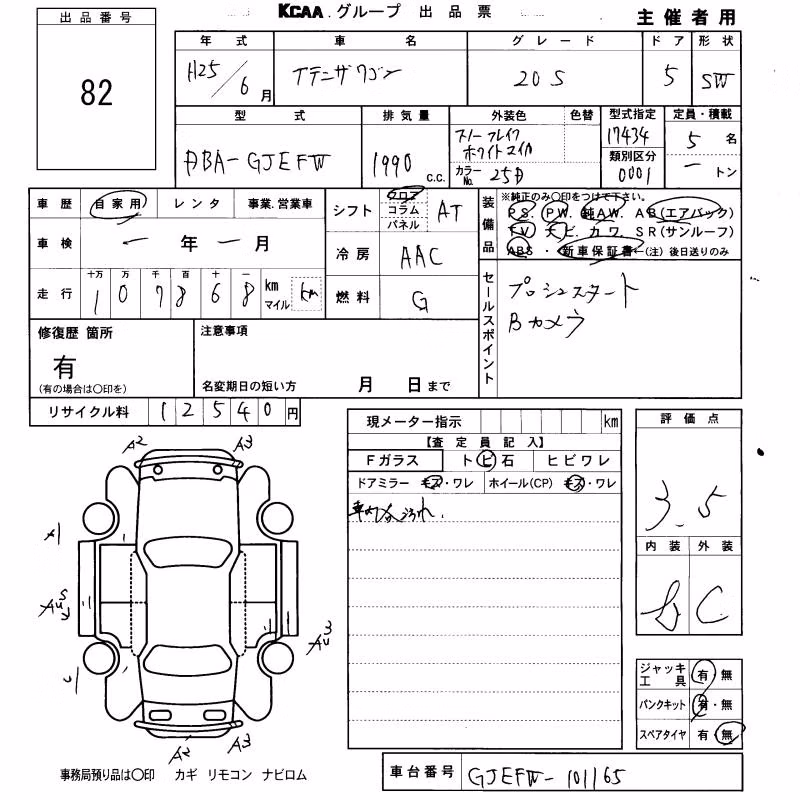 出品番号
KCAA.グループ 出品票
主催者用
82
年式 車名 グレード ドア 形状
H25/6月 アテンザワゴン 20S 5 SW
型式 排気量 外装色 色替 型式指定 定員・積載
DBA-GJEFW 1990 c.c. スノーフレイクホワイトマイカ 17434 5名
カラーNo. 25D 類別区分 0001 - トン
車歴 自家用 レンタ 事業.営業車
シフト フロア コラム パネル AT
装備品
※純正のみ○印をつけて下さい。
PS. PW. 純AW. AB(エアバック)
TV. ナビ. カワ. SR(サンルーフ)
ABS・新車保証書←(注)後日送りのみ
車検 - 年 - 月
冷房 AAC
走行 十万 万 千 百 十 一
107868 km マイル km
燃料 G
セールスポイント
プッシュスタート
Bカメラ
修復歴 箇所
有
(有の場合は○印を)
注意事項
名変期日の短い方 月 日まで
リサイクル料 12540円
現メーター指示 km
【査定員記入】
Fガラス トビ石 ヒビワレ
ドアミラー キズ・ワレ ホイール(CP) キズ・ワレ
車内汚れ.
評価点
3.5
内装 外装
b C
A2 A3
A1
A3
A2 A3
ジャッキ工具 有 無
パンクキット 有・無
スペアタイヤ 有 無
事務局預り品は○印 カギ リモコン ナビロム
車台番号 GJEFW-101165